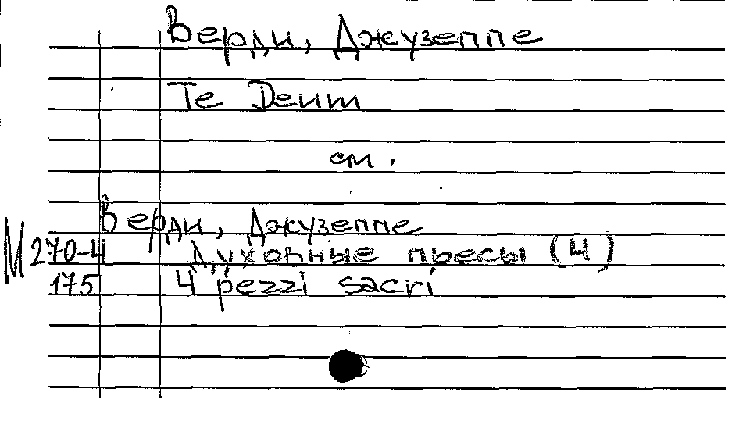 Верди, Джузеппе
Te Deum
см.
Верди, Джузеппе
М 270-4 Духовные пьесы (4)
175 4 pezzi sacri